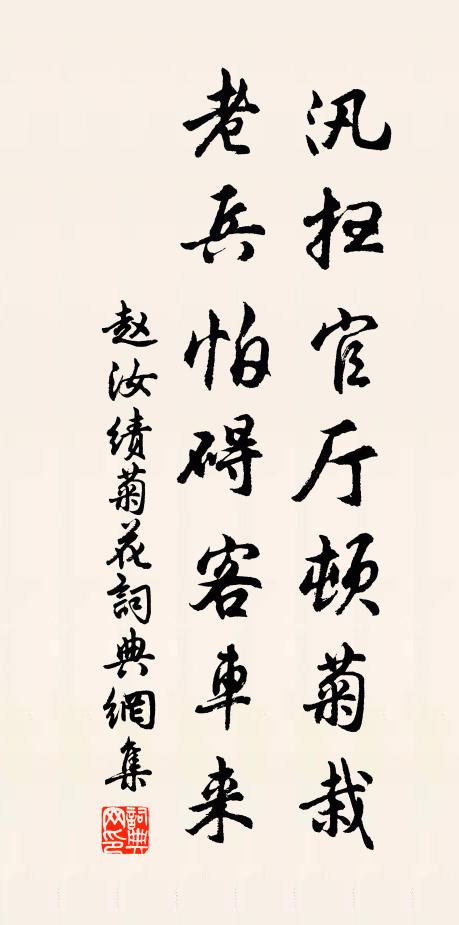 汛扫官厅顿菊栽
老兵怕碍客車来
赵汝绩菊花詞典網集
詞典網印